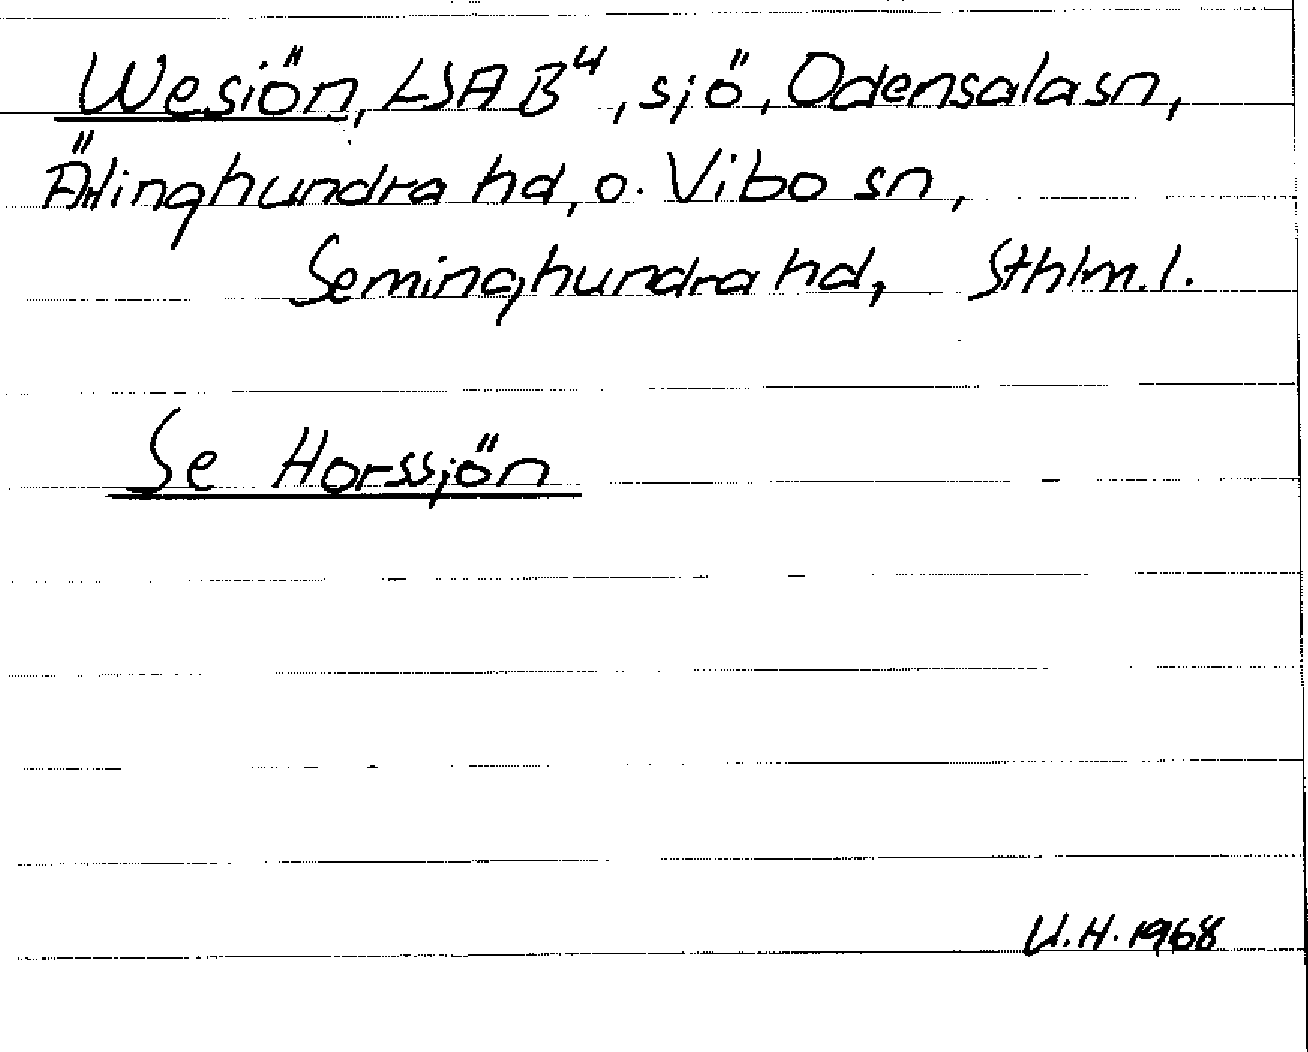 Wesiön, LSA B4, sjö, Odensala sn,
Ärlinghundra hd, o. Vibo sn,
Seminghundra hd, Sthlm. l.
Se Horssjön
U.H. 1968